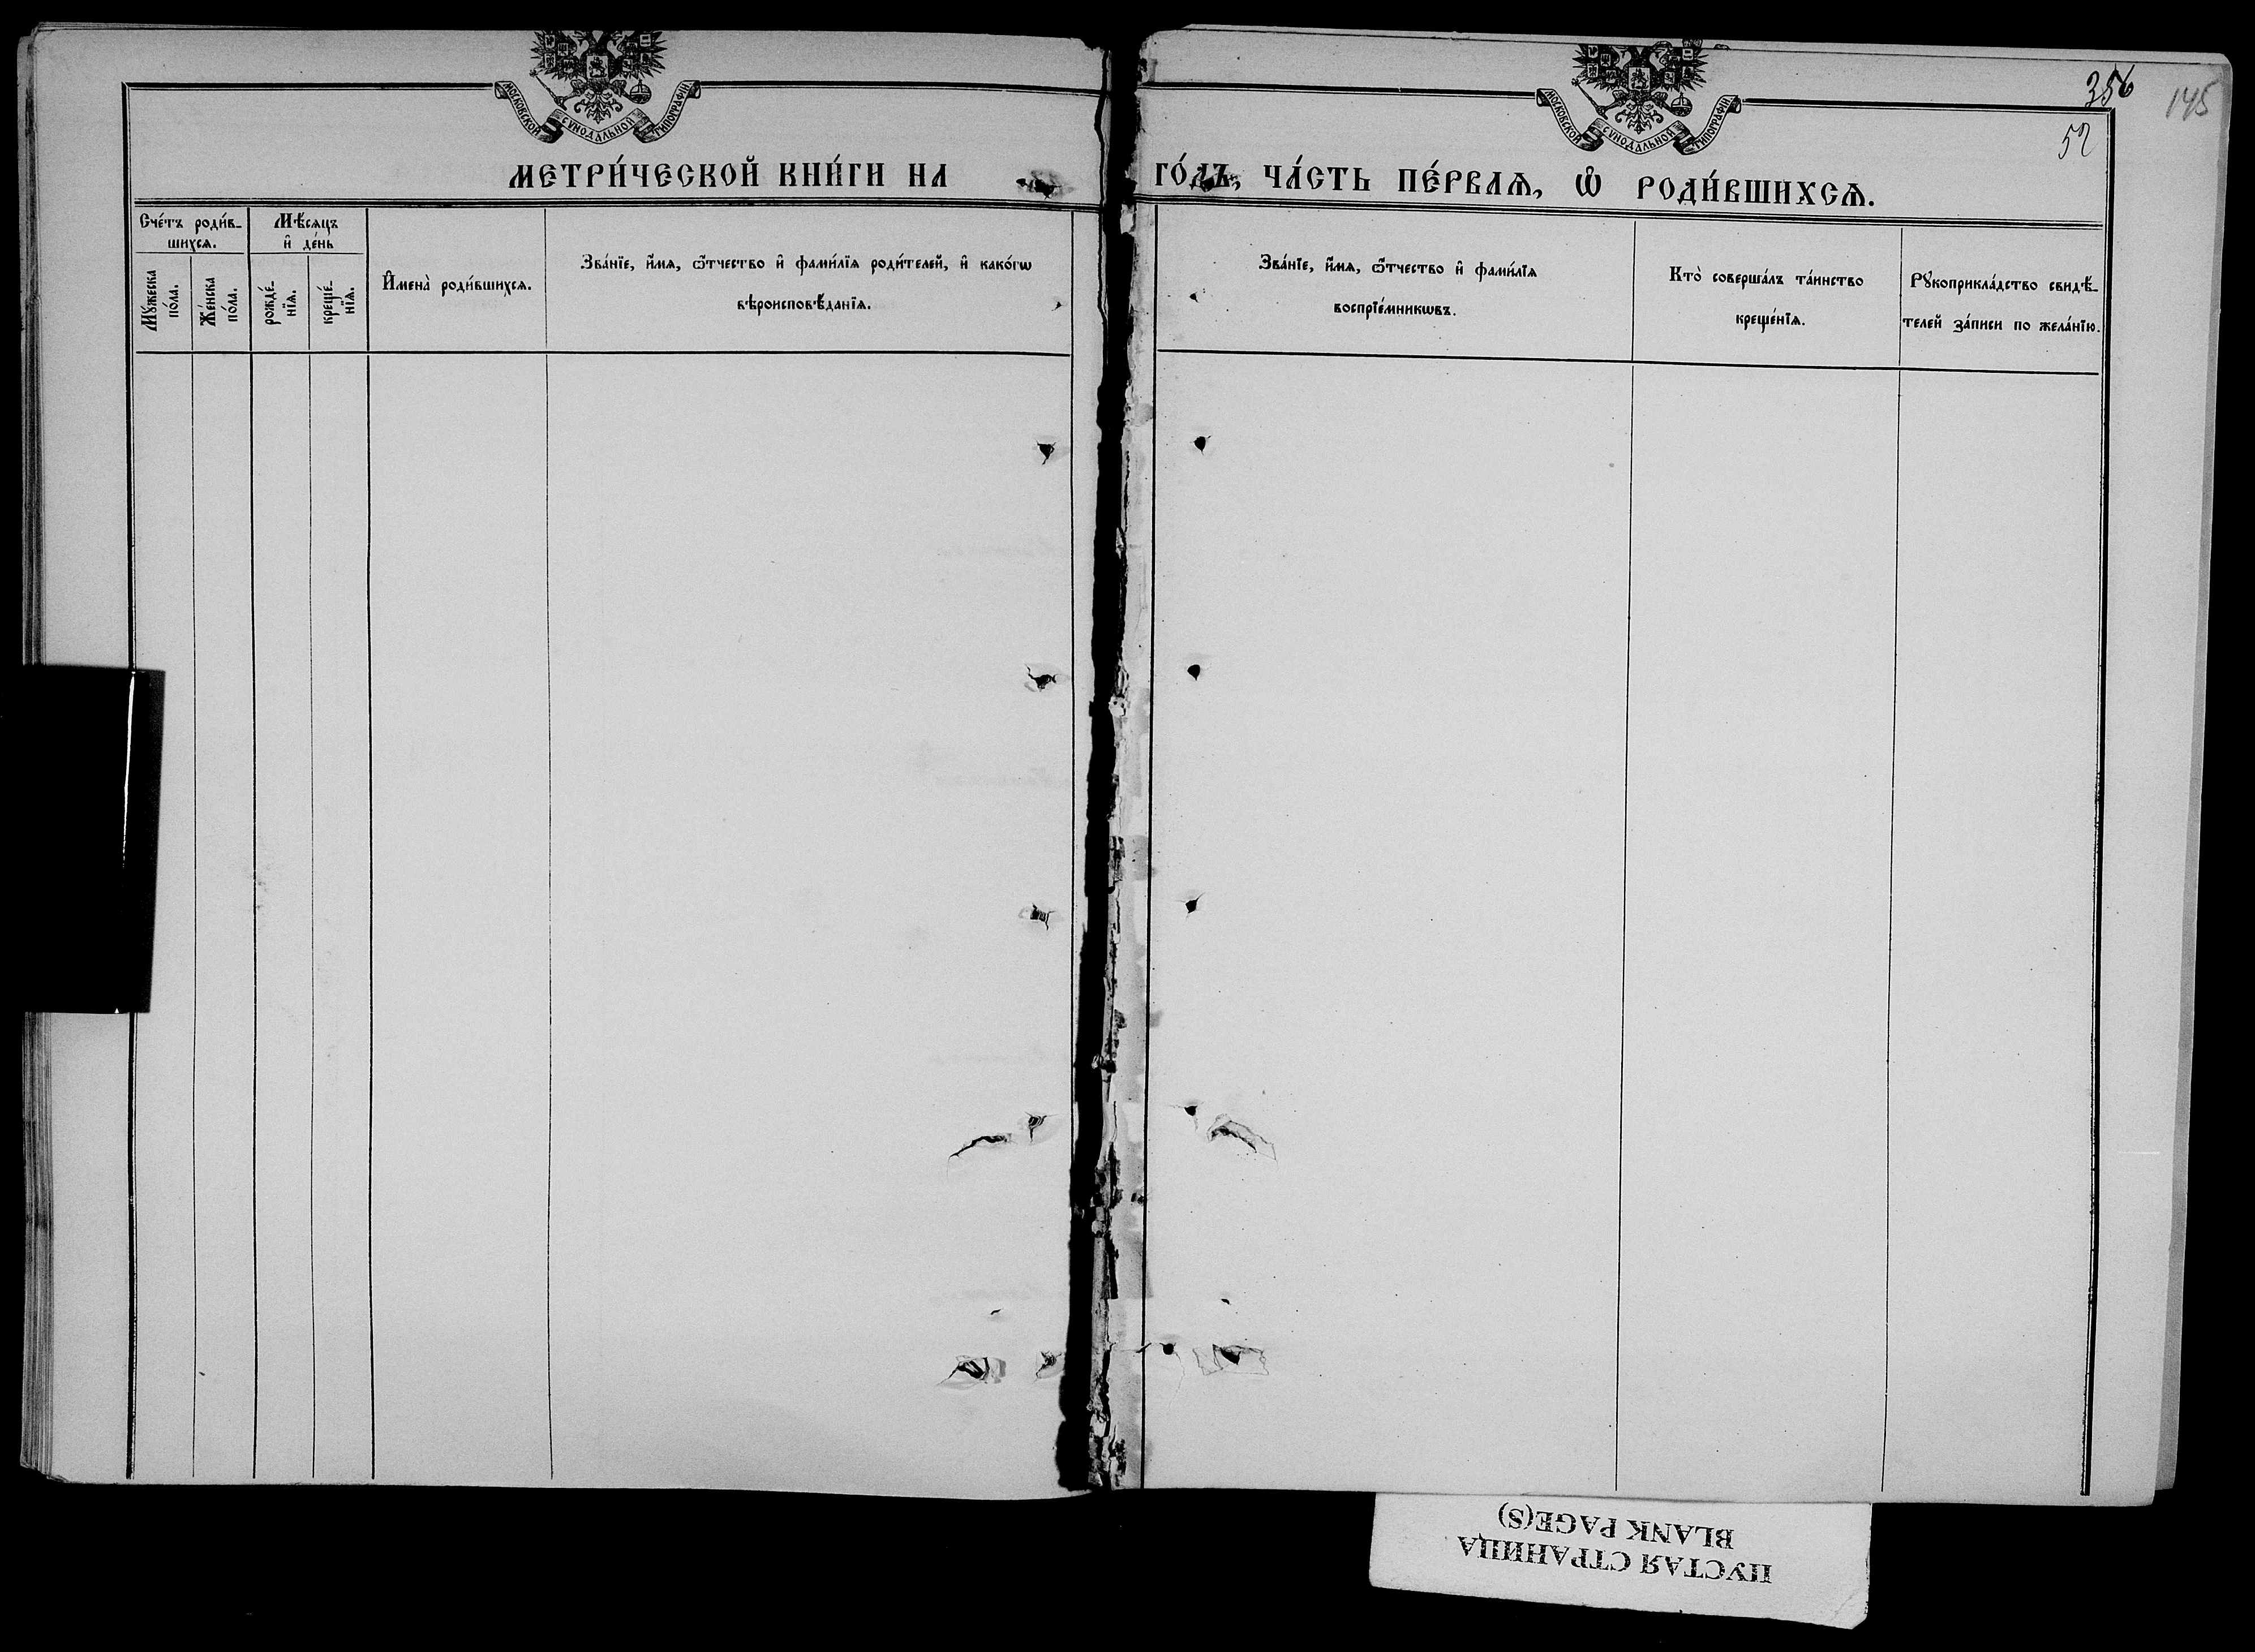 МОСКОВСКОЙ СѴНОДАЛЬНОЙ ТИПОГРАФІИ
МЕТРИ́ЧЕСКОЙ КНИ́ГИ НА
Сче́тъ роди́в-
шихсѧ.
Мѣ́сѧцъ
и҆ де́нь
Мꙋ́жеска
по́ла.
Же́нска
по́ла.
рожде́-
нїѧ.
креще́-
нїѧ.
И҆мена̀ роди́вшихсѧ.
Зва́нїе, и҆́мѧ, ѻ҆́тчество и҆ фами́лїѧ роди́телей, и҆ како́гѡ
вѣроисповѣ́данїѧ.
МОСКОВСКОЙ СѴНОДАЛЬНОЙ ТИПОГРАФІИ
356
145
52
ГО́ДЪ, ЧА́СТЬ ПЕ́РВАѦ, Ѡ҆ РОДИ́ВШИХСѦ.
Зва́нїе, и҆́мѧ, ѻ҆́тчество и҆ фами́лїѧ
воспрїе́мникѡвъ.
Кто̀ соверша́лъ та́инство
креще́нїѧ.
Рꙋкоприкла́дство свидѣ́-
телей за́писи по жела́нїю.
ПУСТАЯ СТРАНИЦА
BLANK PAGE(S)